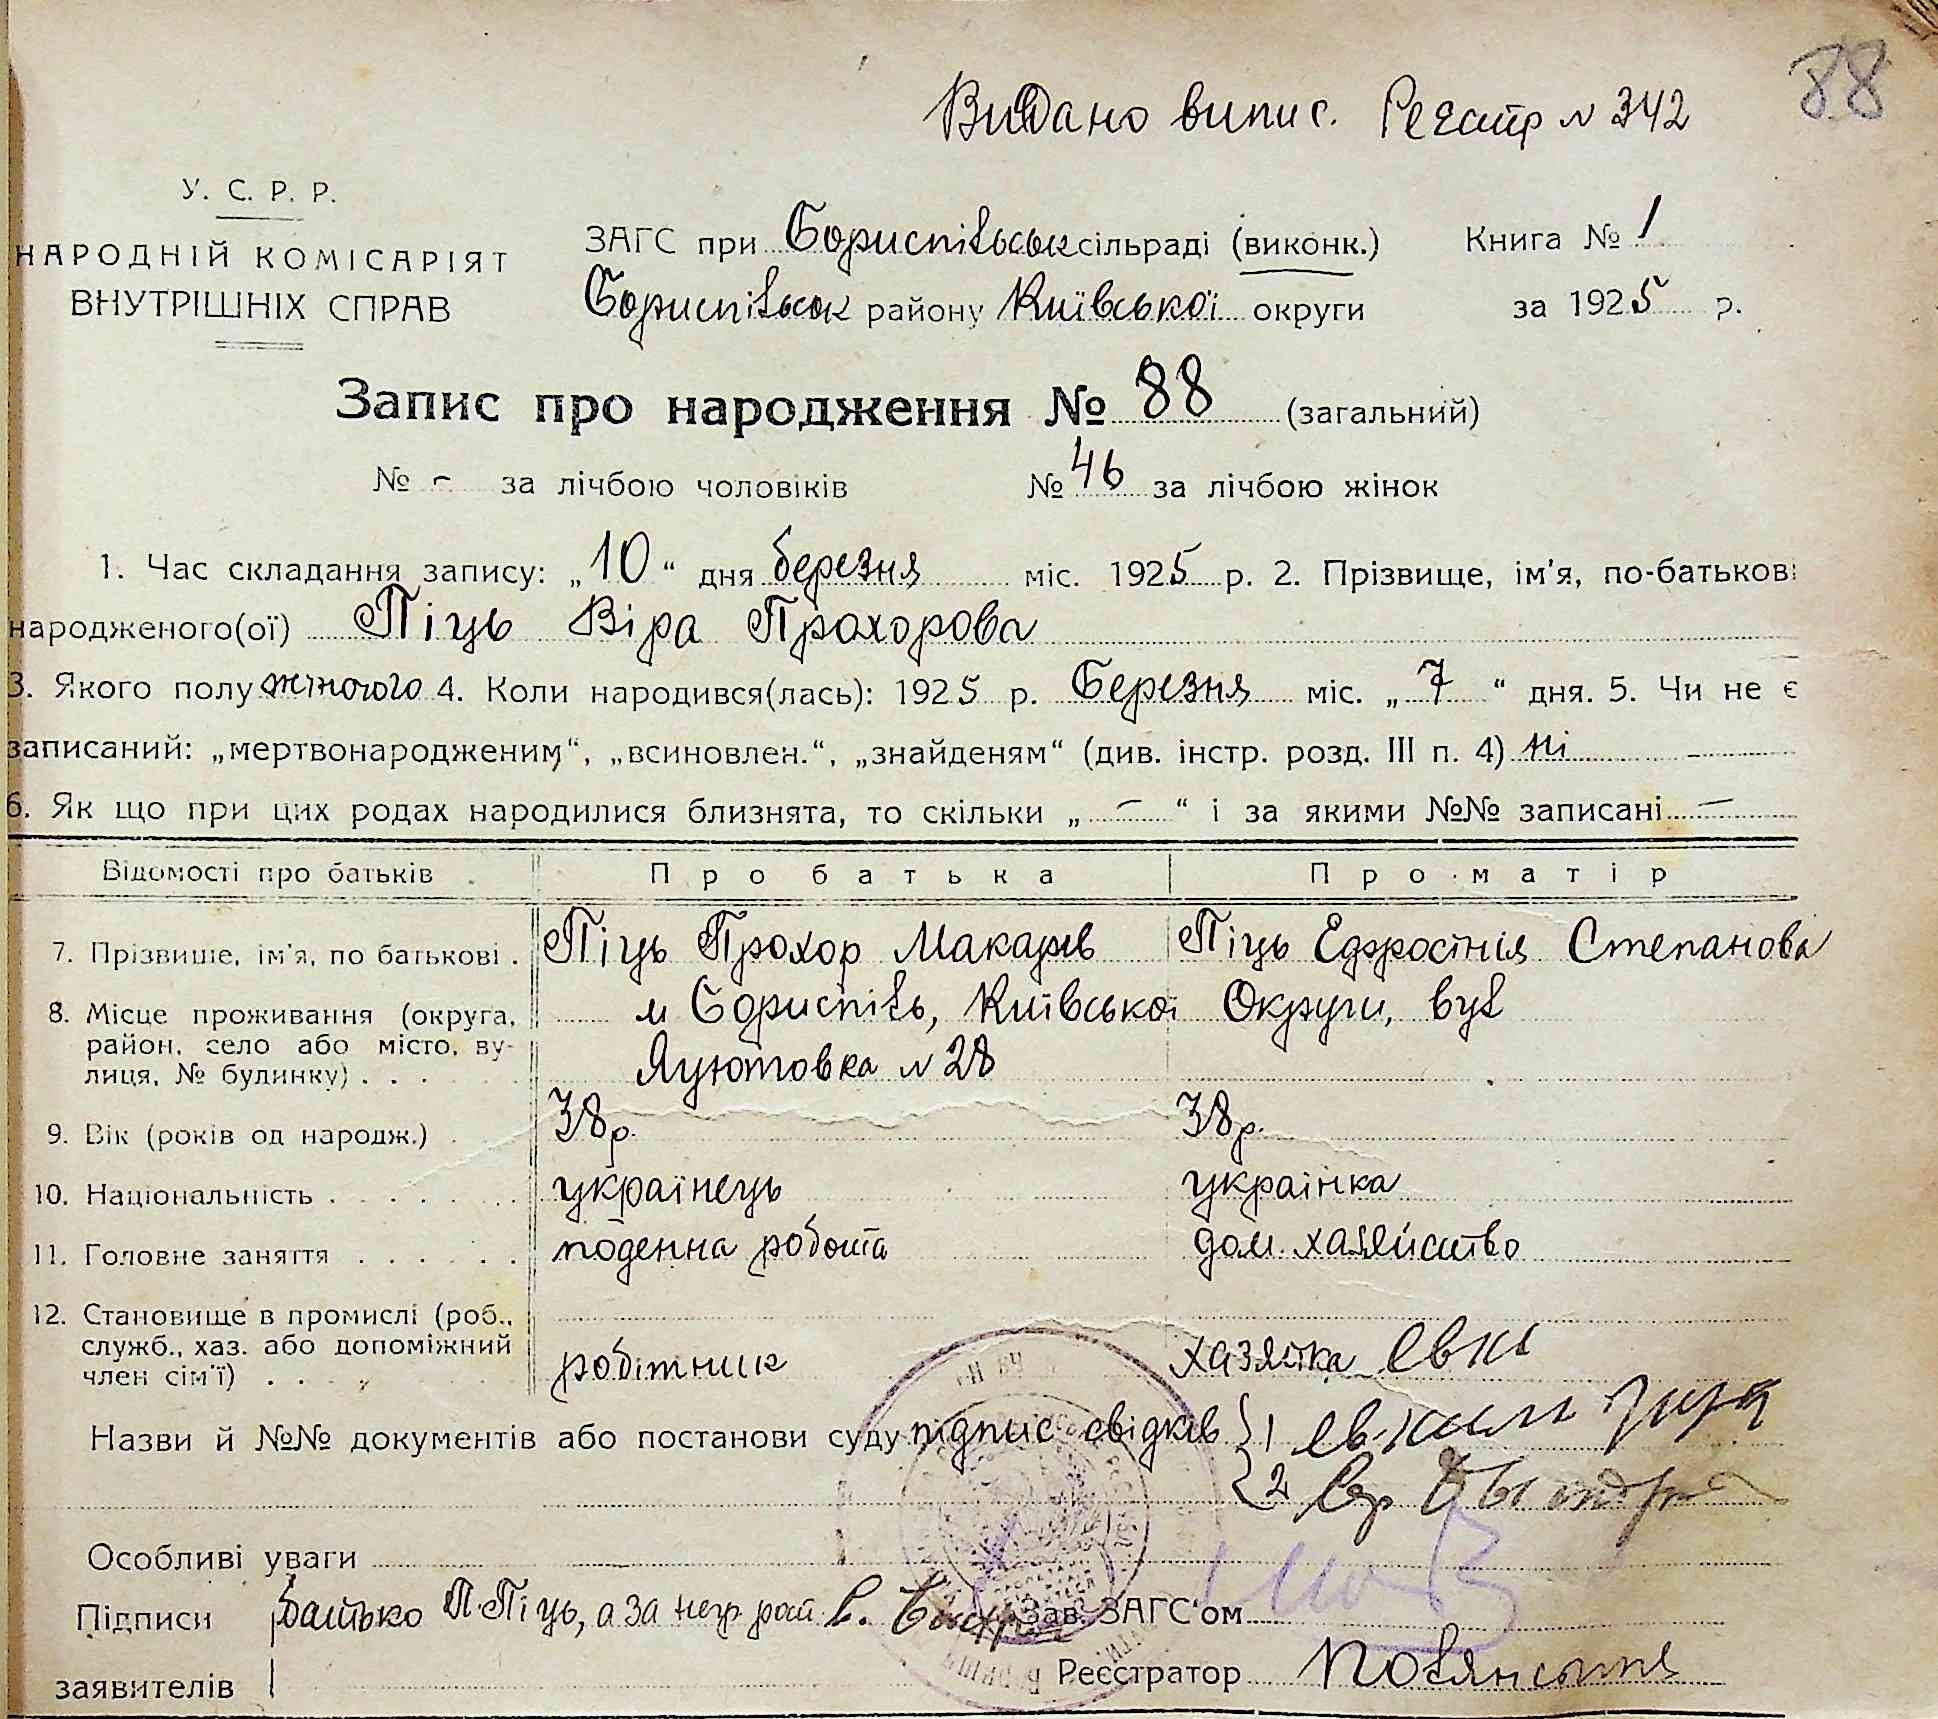 88
Видано випис. Реєстр № 342
У. С. Р. Р.
НАРОДНІЙ КОМІСАРІЯТ
ВНУТРІШНІХ СПРАВ
ЗАГС при Бориспільськ сільраді (виконк.) Книга № 1
Бориспільськ району Київської округи за 1925 р.
Запис про народження № 88 (загальний)
№ - за лічбою чоловіків № 46 за лічбою жінок
1. Час складання запису: „10“ дня березня міс. 1925 р. 2. Прізвище, ім'я, по-батькові
народженого(ої) Піць Віра Прохорова
3. Якого полу жіночого 4. Коли народився(лась): 1925 р. Березня міс. „7“ дня. 5. Чи не є
записаний: „мертвонародженим“, „всиновлен.“, „знайденям“ (див. інстр. розд. III п. 4) ні
6. Як що при цих родах народилися близнята, то скільки „-“ і за якими №№ записані -
Відомості про батьків Про батька Про матір
7. Прізвище, ім'я, по батькові . Піць Прохор Макарів Піць Едфросінія Степанова
8. Місце проживання (округа, район, село або місто, вулиця, № будинку) . . . м Бориспіль, Київської Округи, вул
№ 28
9. Вік (років од народж.) . 38 р. 38 р.
10. Національність . . . . . . . українець українка
11. Головне заняття . . . . . . поденна робота дом. хазяйство
12. Становище в промислі (роб., служб., хаз. або допоміжний член сім'ї) . . . робітник хазяйка
Назви й №№ документів або постанови суду підпис свідків 1
2
Особливі уваги
Підписи батько П. Піць, а за негр Зав. ЗАГС'ом
заявителів Реєстратор